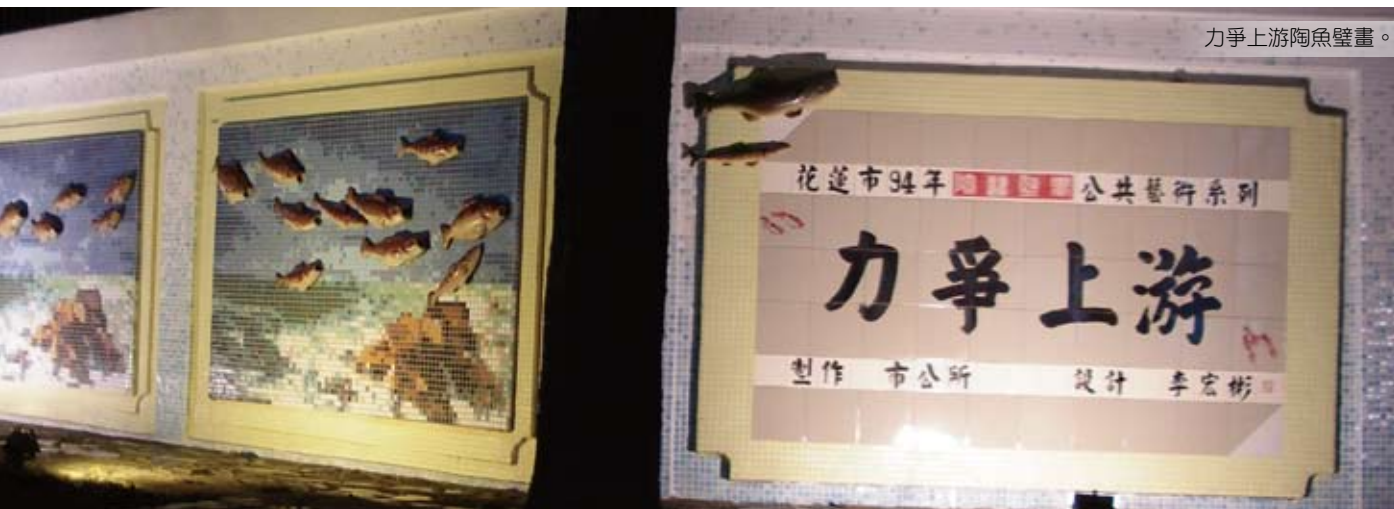 力爭上游陶魚璧畫。
花蓮市94年 公共藝術系列
力爭上游
製作 市公所 設計 李宏彬